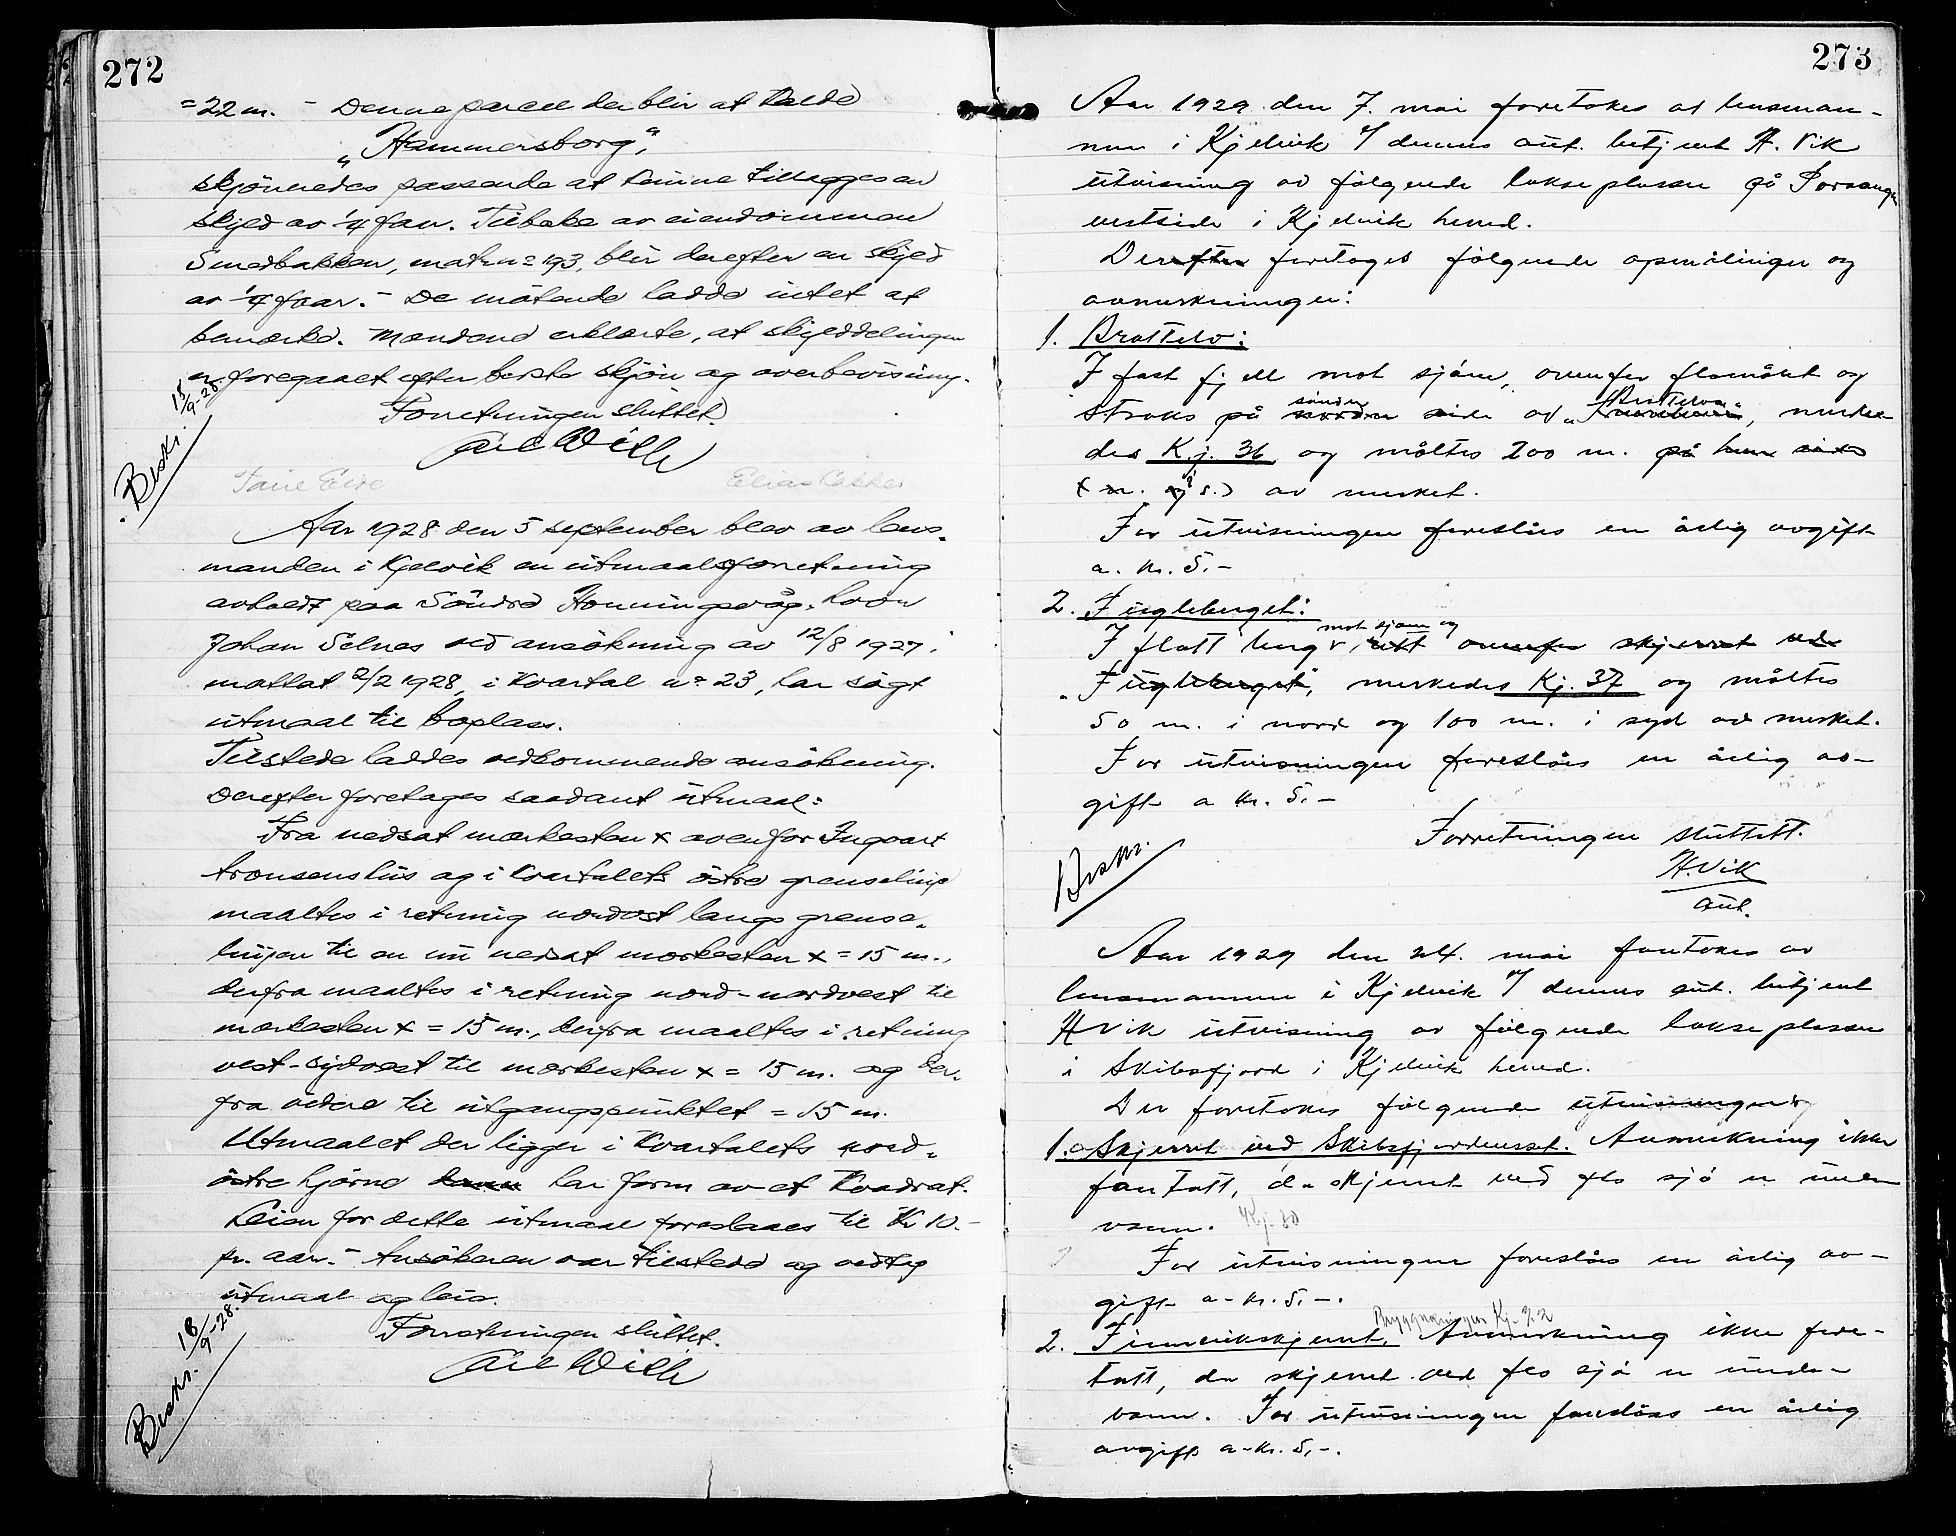 272
= 22 m. – Denne parcel der blir at kalde
„Hammersborg",
skjönnedes passende at kunne tillegges en
skyld av 1/4 far. Tilbake av eiendommen
Smedbakken, matr. nº 193, blir derefter en skyld
av 1/4 faar. – De mötende hadde intet at
bemærke. Mændene erklærte, at skylddelingen
er foregaaet efter beste skjön og overbevisning.
Forretningen sluttet.
Beskr. 15/9-28
Aar 1928 den 5 september blev av lens-
manden i Kjelvik en utmaalsforretning
avholdt paa Söndre Honningsvåg, hvor
Johan Selnes ved ansökning av 12/8 1927,
mottat 2/2 1928, i kvartal nº 23, har sögt
utmaal til boplass.
Tilstede haddes vedkommende ansökning.
Derefter foretages saadant utmaal:
Fra nedsat merkesten x ovenfor Ingvart
tronsens hus og i kvartalets östre grenselinje
maaltes i retning nordost langs grense-
linjen til en nu nedsat merkesten x = 15 m.,
derfra maaltes i retning nord-nordvest til
merkesten x = 15 m., derfra maaltes i retning
vest-sydvest til merkesten x = 15 m. og der-
fra videre til utgangspunktet = 15 m.
Utmaalet der ligger i kvartalets nord-
östre hjörne har form av et kvadrat.
Leien for dette utmaal foreslaaes til Kr 10.–
pr. aar. – Ansökeren var tilstede og vedtog
utmaal og leie.
Forretningen sluttet.
Beskr. 18/9-28.
273
Aar 1929 den 7. mai foretokes av lensman-
nen i Kjelvik v/ dennes aut. betjent H. Vik
utvisning av fölgende lakseplasser på Porsanger
vestside i Kjelvik herred.
Derefter foretages fölgende opmålinger og
avmerkninger:
1. Brattelv:
I fast fjell mot sjöen, ovenfor flomålet og
straks på söndre side av „Brattelva", merke-
des Kj. 36 og måltes 200 m. på
s.) av merket.
For utvisningen foreslåes en årlig avgift
a. kr. 5.–
2. Fugleberget:
I flatt berg mot sjöen og rett ovenfor skjerret ved
„Fugleberget", merkedes Kj. 37 og måltes
50 m. i nord og 100 m. i syd av merket.
For utvisningen foreslåes en årlig av-
gift a kr. 5.–
Forretningen sluttett.
H. Vik
aut.
Beskr.
Aar 1929 den 24. mai foretokes av
lensmannen i Kjelvik v/ dennes aut. betjent
H Vik utvisning av fölgende lakseplasser
i Skibsfjord i Kjelvik herred.
Der foretokes fölgende utvisninger
1. Skjerret ved Skibsfjordneset. Avmerkning ikke
foretatt, da skjerret ved flo sjö er under
vann. Kj. 30
For utvisningen foreslåes en årlig av-
gift a – kr. 5,–.
2. Finnvikskjerret. Avmerkning ikke fore-
Bryggvaringen Kj. 32
tatt, da skjerret ved flo sjö er under
vann. For utvisningen foreslåes en årlig
avgift a – kr. 5,–.